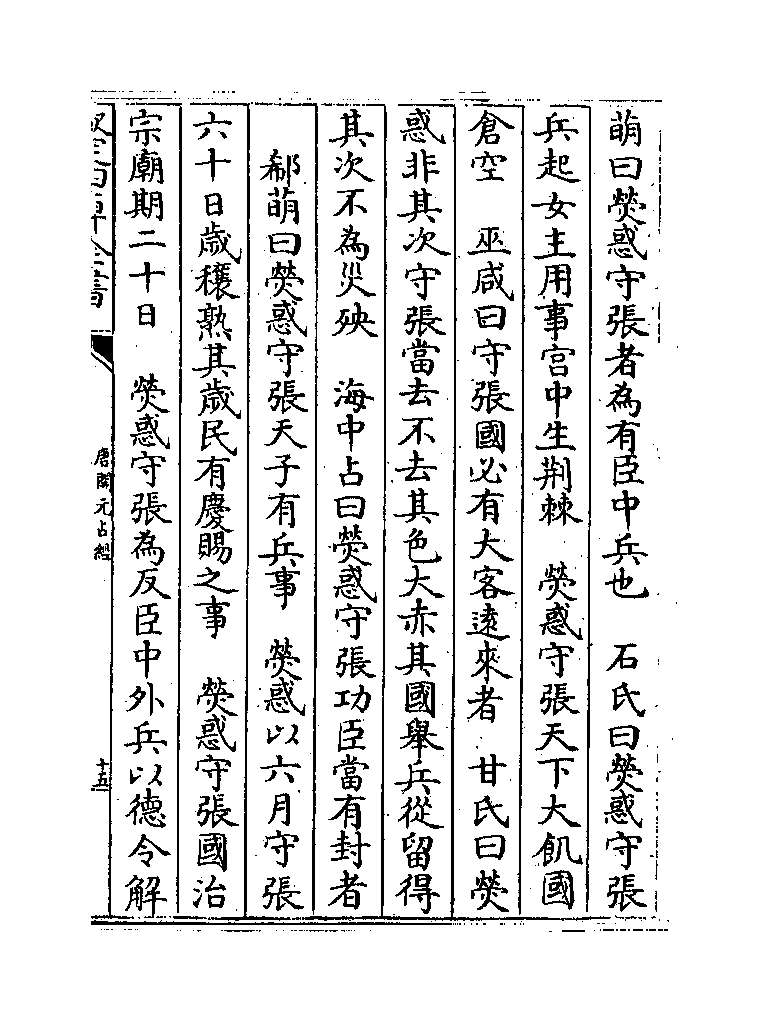 萌曰熒惑守張者為有臣中兵也　石氏曰熒惑守張
兵起女主用事宫中生荆棘　熒惑守張天下大飢國
倉空　巫咸曰守張國必有大客逺來者　甘氏曰熒
惑非其次守張當去不去其色大赤其國舉兵從留得
其次不為災殃　海中占曰熒惑守張功臣當有封者
郗萌曰熒惑守張天子有兵事　熒惑以六月守張
六十日歳穰熟其歳民有慶賜之事　熒惑守張國治
宗廟期二十日　熒惑守張為反臣中外兵以德令解
欽定四庫全書
唐開元占經
十五